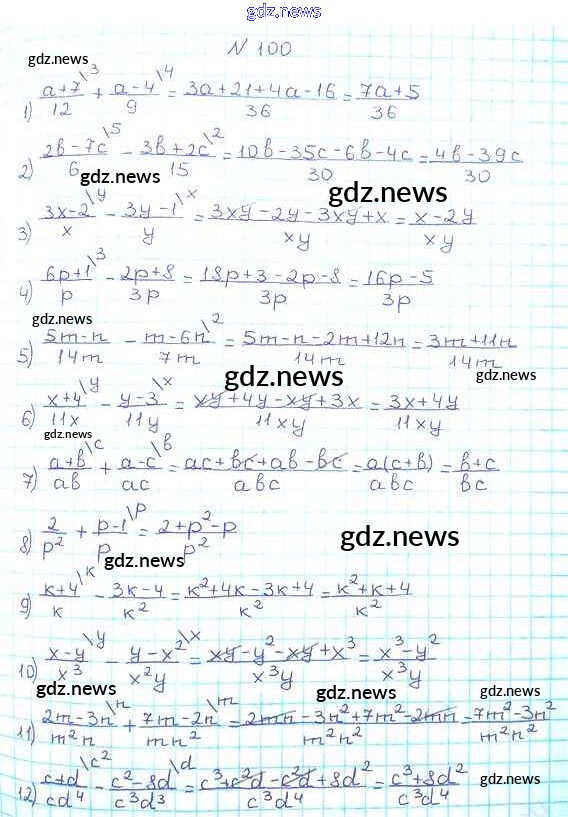 gdz.news
N 100
gdz.news
1) (a+7\3)/12 + (a-4\4)/9 = (3a+21+4a-16)/36 = (7a+5)/36
2) (2b-7c\5)/6 - (3b+2c\2)/15 = (10b-35c-6b-4c)/30 = (4b-39c)/30
gdz.news
gdz.news
3) (3x-2\y)/x - (3y-1\x)/y = (3xy-2y-3xy+x)/xy = (x-2y)/xy
4) (6p+1\3)/p - (2p+8)/3p = (18p+3-2p-8)/3p = (16p-5)/3p
gdz.news
5) (5m-n)/14m - (m-6n\2)/7m = (5m-n-2m+12n)/14m = (3m+11n)/14m
gdz.news
gdz.news
6) (x+4\y)/11x - (y-3\x)/11y = (xy+4y-xy+3x)/11xy = (3x+4y)/11xy
gdz.news
7) (a+b\c)/ab + (a-c\b)/ac = (ac+bc+ab-bc)/abc = a(c+b)/abc = (b+c)/bc
8) 2/p² + (p-1\p)/p = (2+p²-p)/p²
gdz.news
gdz.news
9) (k+4\k)/k - (3k-4)/k² = (k²+4k-3k+4)/k² = (k²+k+4)/k²
10) (x-y\y)/x³ - (y-x²\x)/x²y = (xy-y²-xy+x³)/x³y = (x³-y²)/x³y
gdz.news
gdz.news
gdz.news
11) (2m-3n\n)/m²n + (7m-2n\m)/mn² = (2mn-3n²+7m²-2mn)/m²n² = (7m²-3n²)/m²n²
12) (c+d\c²)/cd⁴ - (c²-8d\d)/c³d³ = (c³+c²d-c²d+8d²)/c³d⁴ = (c³+8d²)/c³d⁴
gdz.news